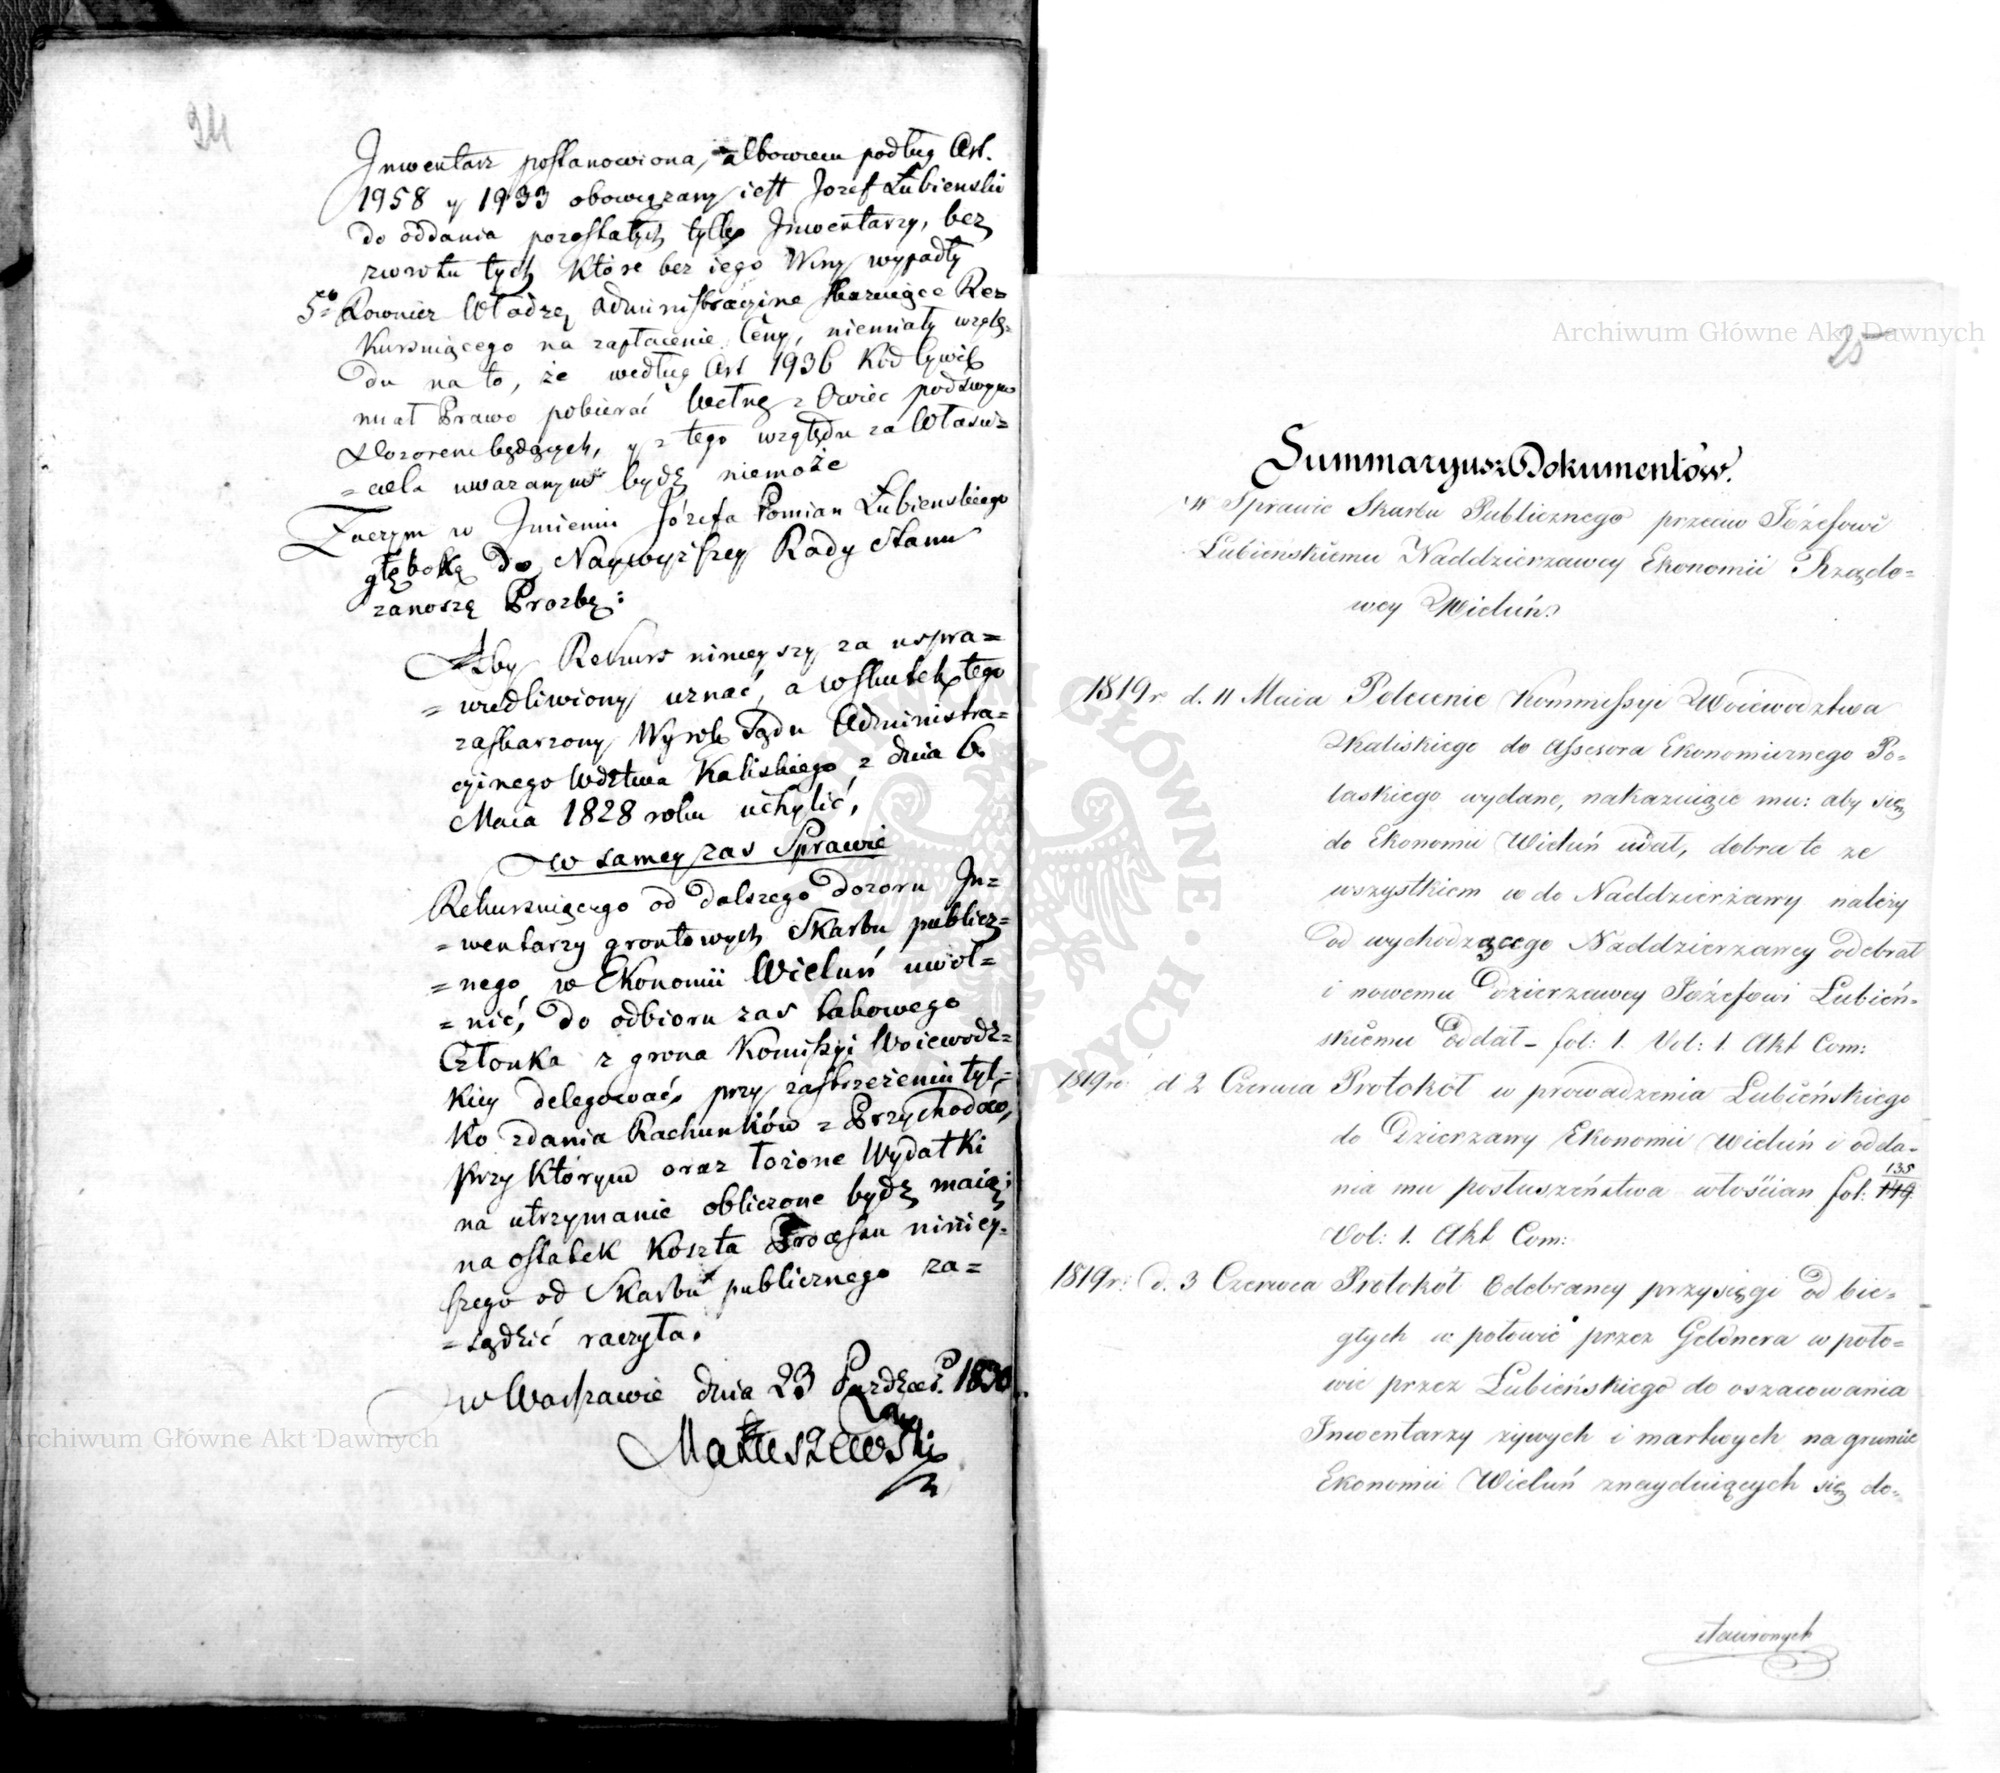 24
Inwentarz postanowiona, albowiem podług Art.
1958 y 1933 obowiązany iest Jozef Łubienski
do oddania pozostałych tylko Inwentarzy, bez
zwrotu tych Które bez iego Winy wypadły
5to Rownież Władzę Administracyine skazuiące Re=
kursuiącego na zapłacenie Ceny, niemiały wzglę=
du na to, że według Art 1936 Kod Cywil
miał Prawo pobierać Wełnę z Owiec pod swym
Dozorem będących, y z tego względu za Właści=
=ciela uwazanym bydź niemoże
Zaczym w Imieniu Józefa Pomian Łubienskiego
głęboką do Naywyższey Rady Stanu
zanoszę Prozbę:
Aby Rekurs ninieyszy za uspra=
=wiedliwiony uznać, a wskutek tego
zaskarzony Wyrok Sądu Administra=
cyinego Wdztwa Kaliskiego z dnia 6.
Maia 1828 roku uchylić,
w samey zas Sprawie
Rekursuiącego od dalszego dozoru In=
=wentarzy gruntowych Skarbu publicz=
=nego w Ekonomii Wieluń uwol=
=nić, do odbioru zas takowego
Członka z grona Komiszyi Woiewodz=
kiey delegować, przy zastrzeżeniu tyl=
ko zdania Rachunków z Przychodów,
przy Którym oraz łożone Wydatki
na utrzymanie obliczone bydź maią;
na ostatek Koszta Processu niniey=
szego od Skarbu publicznego za=
=sądzić raczyła.
w Warszawie dnia 23 Pazdzier. 1830
Mateuszewski
25
Summaryusz Dokumentów.
W Sprawie Skarbu Publicznego przeciw Józefowi
Lubieńskiemu Naddzierzawcy Ekonomii Rządo=
wey Wieluń.
1819 r d. 11 Maia Polecenie Kommissyi Woiewodztwa
Kaliskiego do Assesora Ekonomicznego Po=
laskiego wydane, nakazuiące mu: aby się
do Ekonomii Wieluń udał, dobra te ze
wszystkiem co do Naddzierżawy należy
od wychodzącego Naddzierzawcy odebrał
i nowemu Dzierzawcy Józefowi Lubień=
skiemu oddał _ fol: 1. Vol: 1. Akt Com:
1819 r: d 2 Czerwca Protokół w prowadzenia Lubieńskiego
do Dzierzawy Ekonomii Wieluń i odda=
nia mu posłuszeństwa włościan fol: 149 135
Vol: 1. Akt Com:
1819 r: d. 3 Czerwca Protokół Odebraney przysięgi od bie=
głych w połowie przez Geldnera w poło=
wie przez Lubieńskiego do oszacowania
Inwentarzy żywych i martwych na gruncie
Ekonomii Wieluń znayduiących się do=
stawionych
Archiwum Główne Akt Dawnych
Archiwum Główne Akt Dawnych